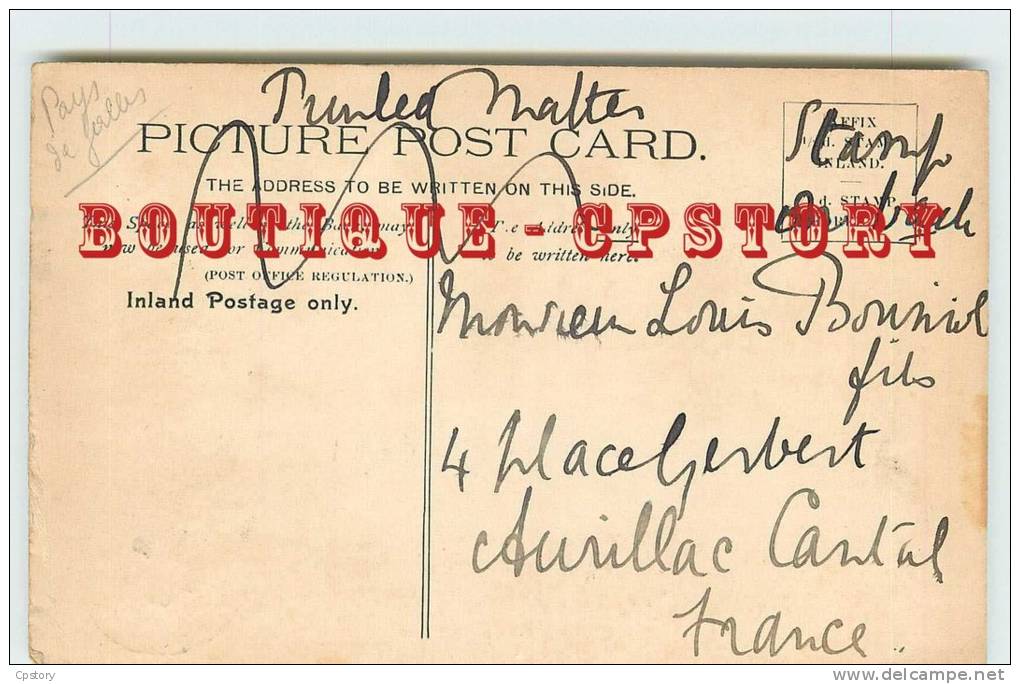 Pays
de Galles
Printed Matter
PICTURE POST CARD.
AFFIX
STAMP
INLAND.
Stamp
THE ADDRESS TO BE WRITTEN ON THIS SIDE.
BOUTIQUE - CPSTORY
be written here.
(POST OFFICE REGULATION.)
Inland Postage only.
Monsieur Louis Bonniol
fils
4 Place Gerbert
Aurillac Cantal
France.
Cpstory
delcampe.net